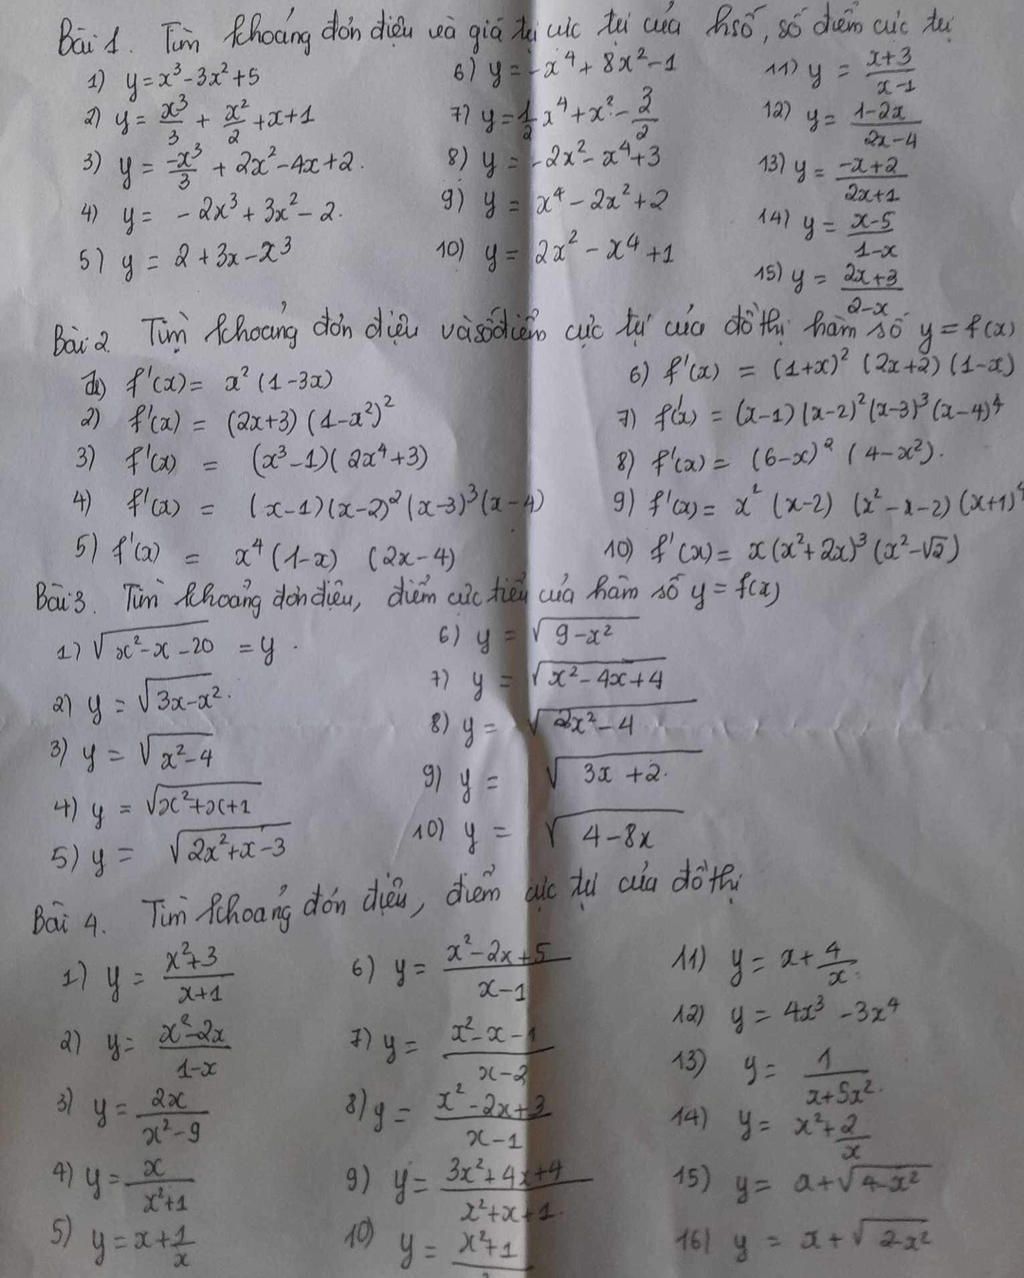 Bài 1. Tìm khoảng đơn điệu và giá trị cực trị của hsố, số điểm cực trị
1) y = x³ - 3x² + 5
2) y = x³/3 + x²/2 + x + 1
3) y = -x³/3 + 2x² - 4x + 2.
4) y = -2x³ + 3x² - 2.
5) y = 2 + 3x - x³
6) y = -x⁴ + 8x² - 1
7) y = 1/2 x⁴ + x² - 3/2
8) y = -2x² - x⁴ + 3
9) y = x⁴ - 2x² + 2
10) y = 2x² - x⁴ + 1
11) y = (x+3)/(x-1)
12) y = (1-2x)/(2x-4)
13) y = (-x+2)/(2x+1)
14) y = (x-5)/(1-x)
15) y = (2x+3)/(2-x)
Bài 2. Tìm khoảng đơn điệu và số điểm cực trị của đồ thị hàm số y = f(x)
1) f'(x) = x² (1-3x)
2) f'(x) = (2x+3) (1-x²)²
3) f'(x) = (x³-1)(2x⁴+3)
4) f'(x) = (x-1)(x-2)² (x-3)³ (x-4)
5) f'(x) = x⁴ (1-x) (2x-4)
6) f'(x) = (1+x)² (2x+2) (1-x)
7) f'(x) = (x-1)(x-2)²(x-3)³(x-4)⁴
8) f'(x) = (6-x)² (4-x²).
9) f'(x) = x² (x-2) (x²-x-2) (x+1)⁴
10) f'(x) = x(x²+2x)³ (x²-√2)
Bài 3. Tìm khoảng đơn điệu, điểm cực tiểu của hàm số y = f(x)
1) √(x²-x-20) = y.
2) y = √(3x-x²).
3) y = √(x²-4)
4) y = √(x²+x+1)
5) y = √(2x²+x-3)
6) y = √(9-x²)
7) y = √(x²-4x+4)
8) y = √(2x²-4)
9) y = √(3x+2).
10) y = √(4-8x)
Bài 4. Tìm khoảng đơn điệu, điểm cực trị của đồ thị
1) y = (x²+3)/(x+1)
2) y = (x²-2x)/(1-x)
3) y = 2x/(x²-9)
4) y = x/(x²+1)
5) y = x + 1/x
6) y = (x²-2x+5)/(x-1)
7) y = (x²-x-1)/(x-2)
8) y = (x²-2x+3)/(x-1)
9) y = (3x²+4x+4)/(x²+x+1).
10) y = x²+1
11) y = x + 4/x
12) y = 4x³ - 3x⁴
13) y = 1/(x+5x²).
14) y = x² + 2/x
15) y = x + √(4-x²)
16) y = x + √(2x²